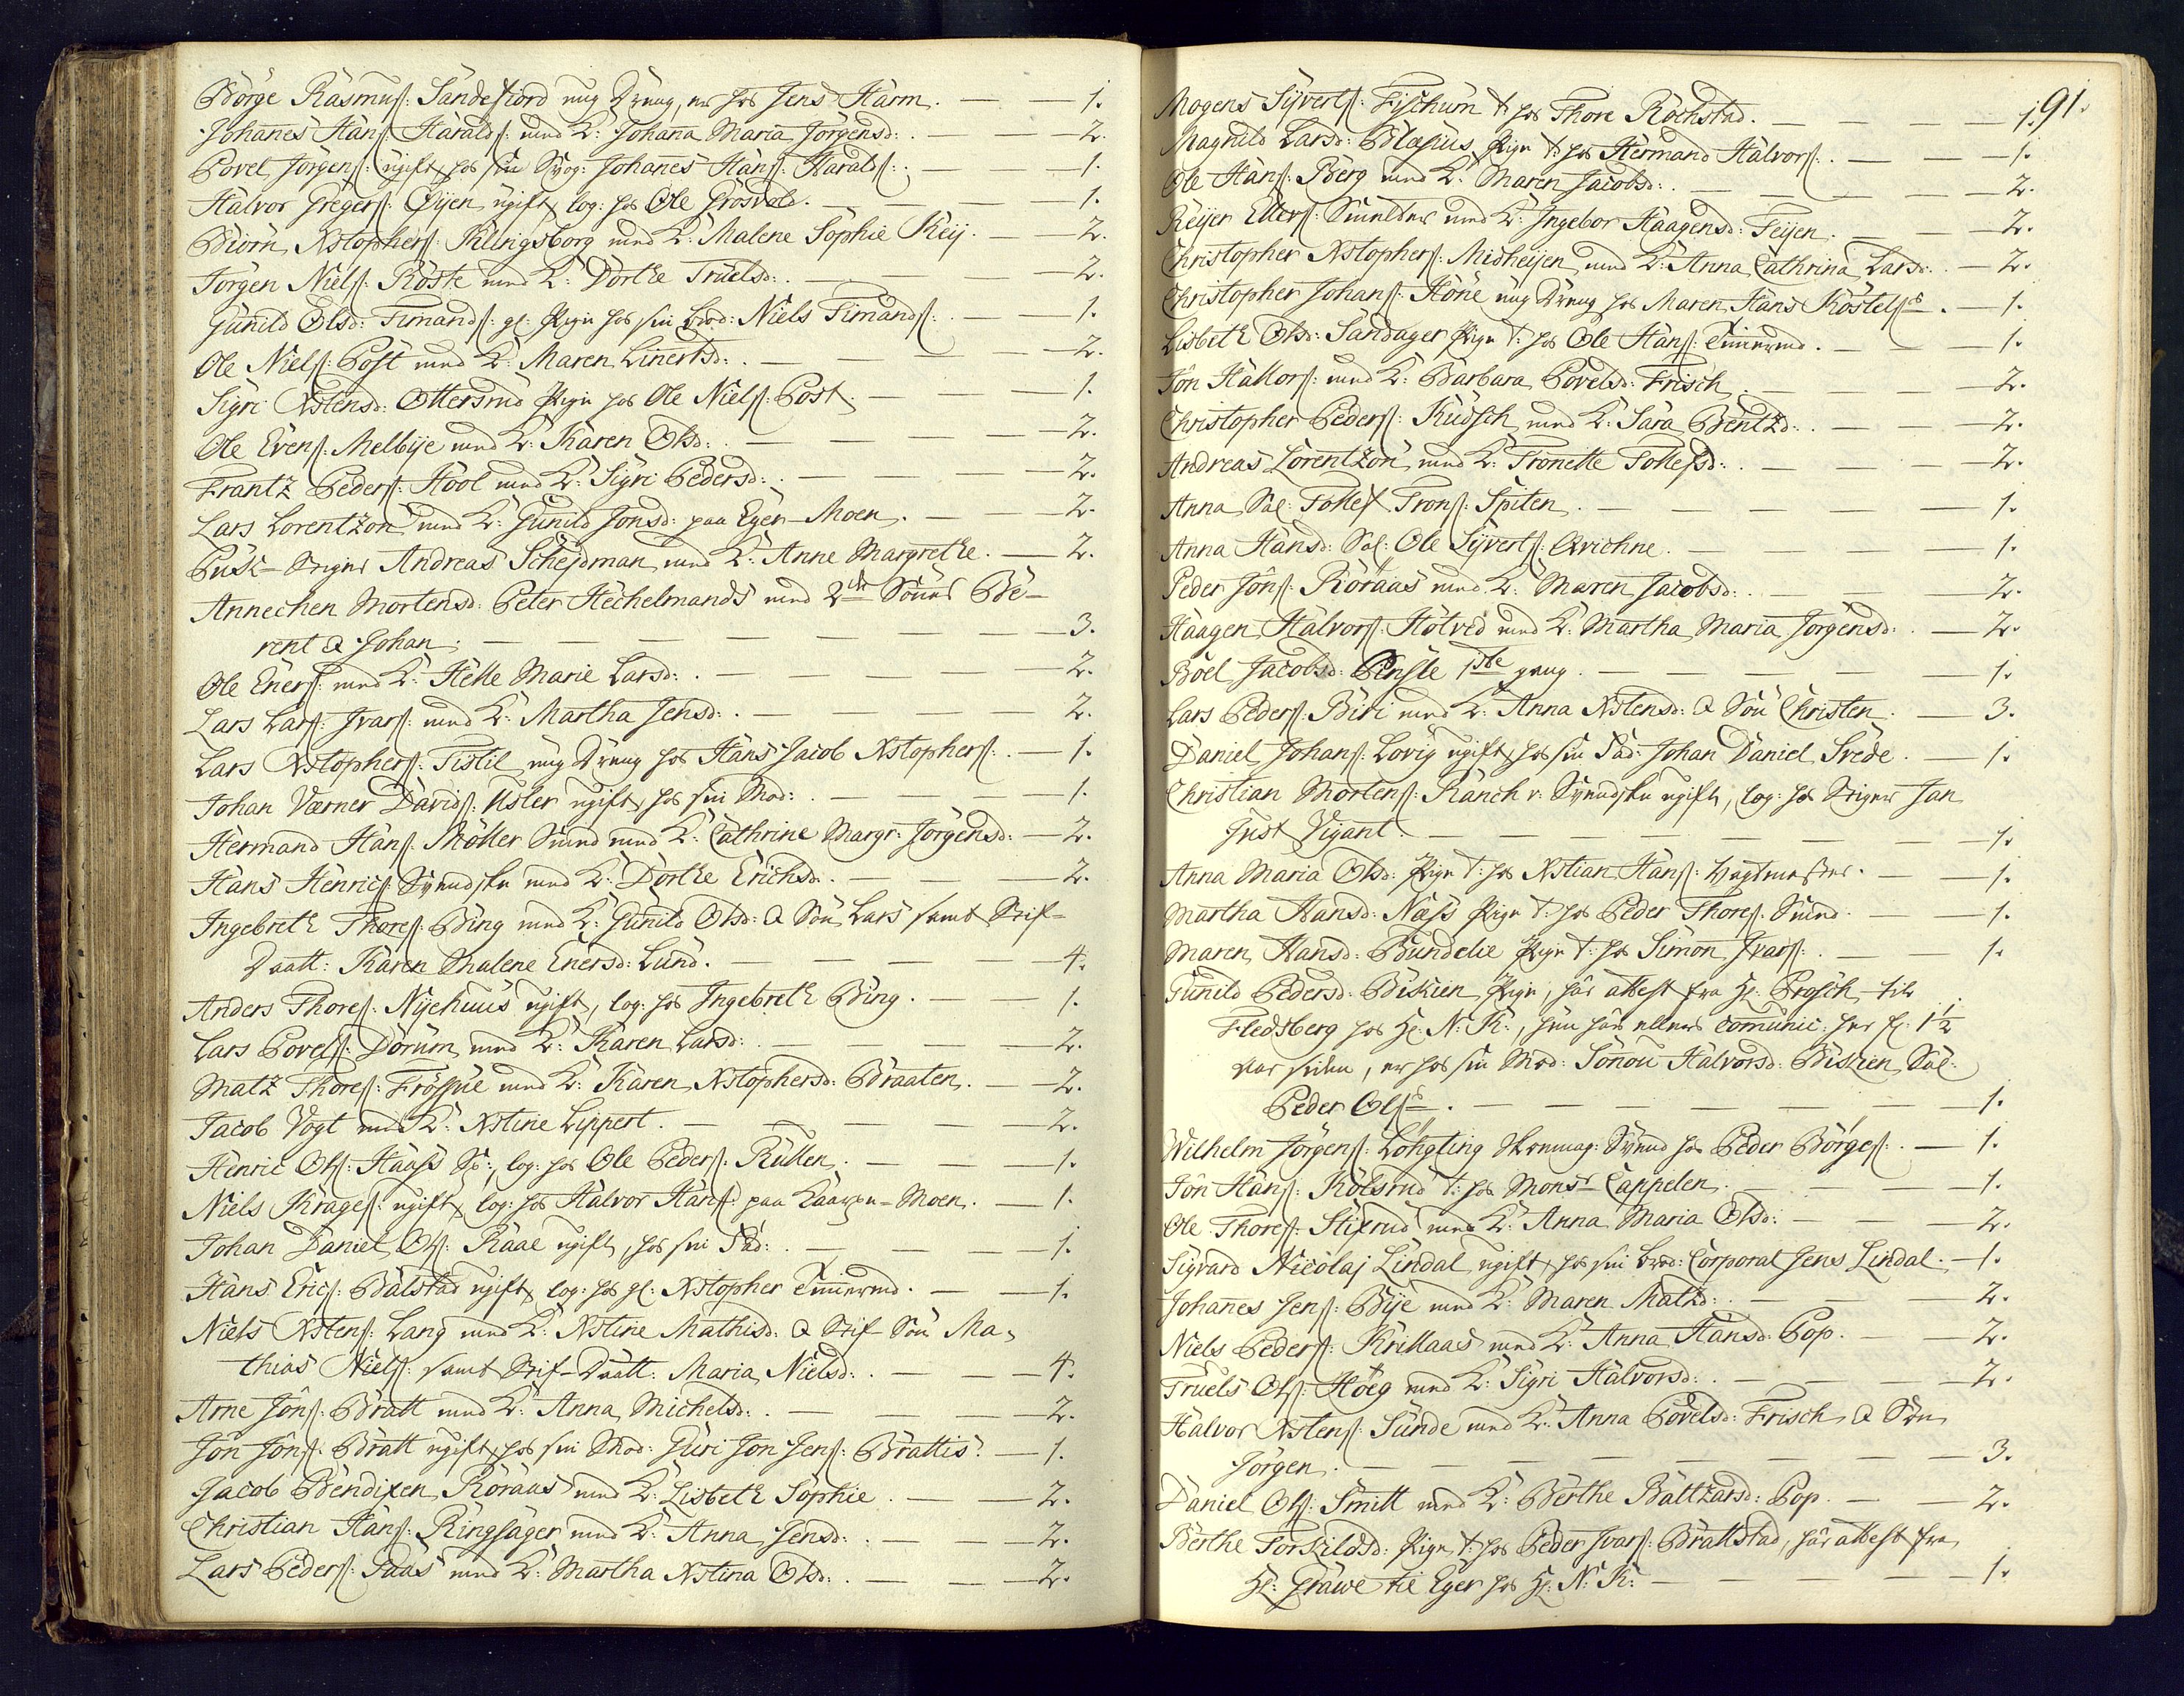 Börge Rasmuss: Sandefiord ung Dreng, er hos Jens Harm. — — 1.
Johannes Hanss: Haralds: med K: Johana Maria Jörgensd: . — — 2.
Povel Jörgens: ugift, hos sin Svog: Johanes Hanss: Haralds: . — — 1.
Halvor Gregers: Öyen ugift, log: hos Ole Grosvold. — — — 1.
Biörn Xstophers: Klingsborg med K: Malene Sophie Keij. — — 2.
Jörgen Niels: Röste med K: Dorthe Truelsd: . — — — 2.
Gunild Olsd: Timands: gl. Pige hos sin brod: Niels Timands: . — — 1.
Ole Niels: Post med K: Maren Linertsd: . — — — 2.
Sigri Xstensd: Ottersrud Pige hos Ole Niels: Post. — — — 1.
Ole Evens: Melbije med K: Karen Olsd: . — — — 2.
Frantz Peders: Hool med K: Sigri Pedersd: . — — — 2.
Lars Lorentzon med K: Gunild Jonsd: paa Eger-Moen. — — 2.
Puk-Stiger Andreas Schejdman med K: Anne Margrethe. — 2.
Annechen Mortensd: Peter Hechelmands med 2de Sönner Be-
rent & Johan. — — — — — — 3.
Ole Eners: med K: Helle Marie Larsd: . — — — — 2.
Lars Lars: Ivars: med K: Martha Jensd: . — — — — 2.
Lars Xstophers: Tistil ung Dreng hos Hans Jacob Xstophers: . — 1.
Johan Værner Davids: Usler ugift, hos sin Mod: . — — — 1.
Hermand Hans: Möller Smed med K: Cathrine Margr: Jörgensd: — 2.
Hans Henrics: Svendske med K: Dorthe Erichsd: . — — — 2.
Ingebreth Thores: Bing med K: Gunild Olsd: & Sön Lars samt Stif-
Daatt: Karen Malene Enersd: Lund. — — — — 4.
Anders Thores: Nijehuus ugift, log: hos Ingebreth Bing. — — 1.
Lars Povels: Dorum med K: Karen Larsd: . — — — 2.
Matz Thores: Frössue med K: Karen Xstophersd: Braaten. — 2.
Jacob Vogt med K: Xstine Lippert. — — — — 2.
Henric Ols: Haass , log: hos Ole Peders: Rullen. — — — 1.
Niels Krages: ugift, log: hos Halvor Hans: paa Moen. — 1.
Johan Daniel Ols: Raae ugift, hos sin Fad: . — — — 1.
Hans Erics: Balstad ugift, log: hos gl: Xstopher Timermd. — — 1.
Niels Xstens: Lang med K: Xstine Mathisd: & Stif-Sön Ma-
thias Niels: samt Stif-Daatt: Maria Nielsd: . — — — 4.
Arne Jöns: Bratt med K: Anna Michelsd: . — — — — 2.
Jön Jöns: Bratt ugift, hos sin Mod: Guri Jon Jens: Brattis: — 1.
Jacob Bendixen Röraas med K: Lisbeth Sophie. — — — 2.
Christian Hans: Ringsager med K: Anna Jensd: . — — — 2.
Lars Peders: Saas med K: Martha Xstina Olsd: . — — — 2.
91.
Mogens Sijverts: Fischum t: hos Thore Rochstad. — — — 1.
Magnild Larsd: Blasius Pige t: hos Hermand Halvors: . — — 1.
Ole Hans: Berg med K: Maren Jacobsd: . — — — 2.
Reijer Ellers: Smelter med K: Ingebor Haagensd: Feijen. — — 2.
Christopher Xstophers: Midheijen med K: Anna Cathrina Larsd: . — 2.
Christopher Johans: Höne ung Dreng hos Maren Hans Köstelss. — 1.
Lisbeth Olsd: Sandager Pige t: hos Ole Hans: Timermd. — — 1.
Jön Hallors: med K: Barbara Povelsd: Frisch. — — — 2.
Christopher Peders: Kudsch med K: Sara Bentzd: . — — — 2.
Andreas Lorentzon med K: Tronette Tollefsd: . — — — 2.
Anna Sal: Tollef Trons: Spiten. — — — — 1.
Anna Hansd: Sal: Ole Sijverts: Qvichne. — — — 1.
Peder Jöns: Röraas med K: Maren Jacobsd: . — — — 2.
Haagen Halvors: Hotved med K: Martha Maria Jörgensd: . — 2.
Boel Jacobsd: Penste 1ste gang. — — — — 1.
Lars Peders: Biri med K: Anna Xstensd: & Sön Christen. — 3.
Daniel Johans: Lovig ugift, hos sin Fad: Johan Daniel Svede. — 1.
Christian Mortens: Ranch v: Svendske ugift, log: hos Stiger Jan
Just Vigant. — — — — — — 1.
Anna Maria Olsd: Pige t: hos Xstian Hans: Vagtmester. — — 1.
Martha Hansd: Næss Pige t: hos Peder Thores: Smed. — — 1.
Maren Hansd: Bundelie Pige t: hos Simon Ivars: . — — 1.
Gunild Pedersd: Biskien Pige, har attest fra Hr: Brosch til
Fledsberg hos Hr: N: K:, hun har ellers comunic: her f: 1½
aar siden, er hos sin Mod: Sönou Halvorsd: Biskien Sal:
Peder Olss. — — — — — — 1.
Wilhelm Jörgens: Lohgling Skomag: Svend hos Peder Börges: . — 1.
Jön Hans: Kolsrud t: hos Monsr Cappelen. — — — 1.
Ole Thores: Stixrud med K: Anna Maria Olsd: . — — — 2.
Sigvard Nicolaj Lindal ugift, hos sin brod: Corporal Jens Lindal. — 1.
Johanes Jens: Bije med K: Maren Matzd: . — — — 2.
Niels Peders: Krillaas med K: Anna Hansd: Pop. — — — 2.
Truels Ols: Höeg med K: Sigri Halvorsd: . — — — 2.
Halvor Xstens: Sunde med K: Anna Povelsd: Frisch & Sön
Jörgen. — — — — — — — 3.
Daniel Ols: Smitt med K: Berthe Baltzarsd: Pop. — — 2.
Berthe Torkildsd: Pige t: hos Peder Ivars: Brattstad, har attest fra
Hr: Grawe til Eger hos Hr: N: K: — — — — 1.